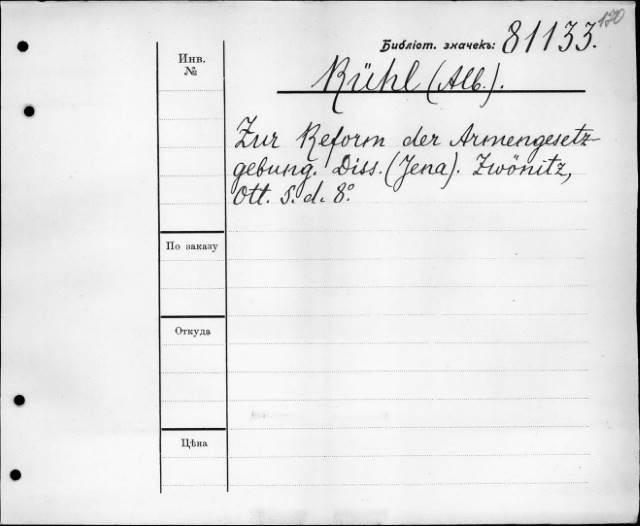 120
Библіот. значекъ: 81133.
Инв.
№
Kühl (Alb.).
Zur Reform der Armengesetz-
gebung. Diss. (Jena). Zwönitz,
Ott. s. d. 8º
По заказу
Откуда
Цѣна